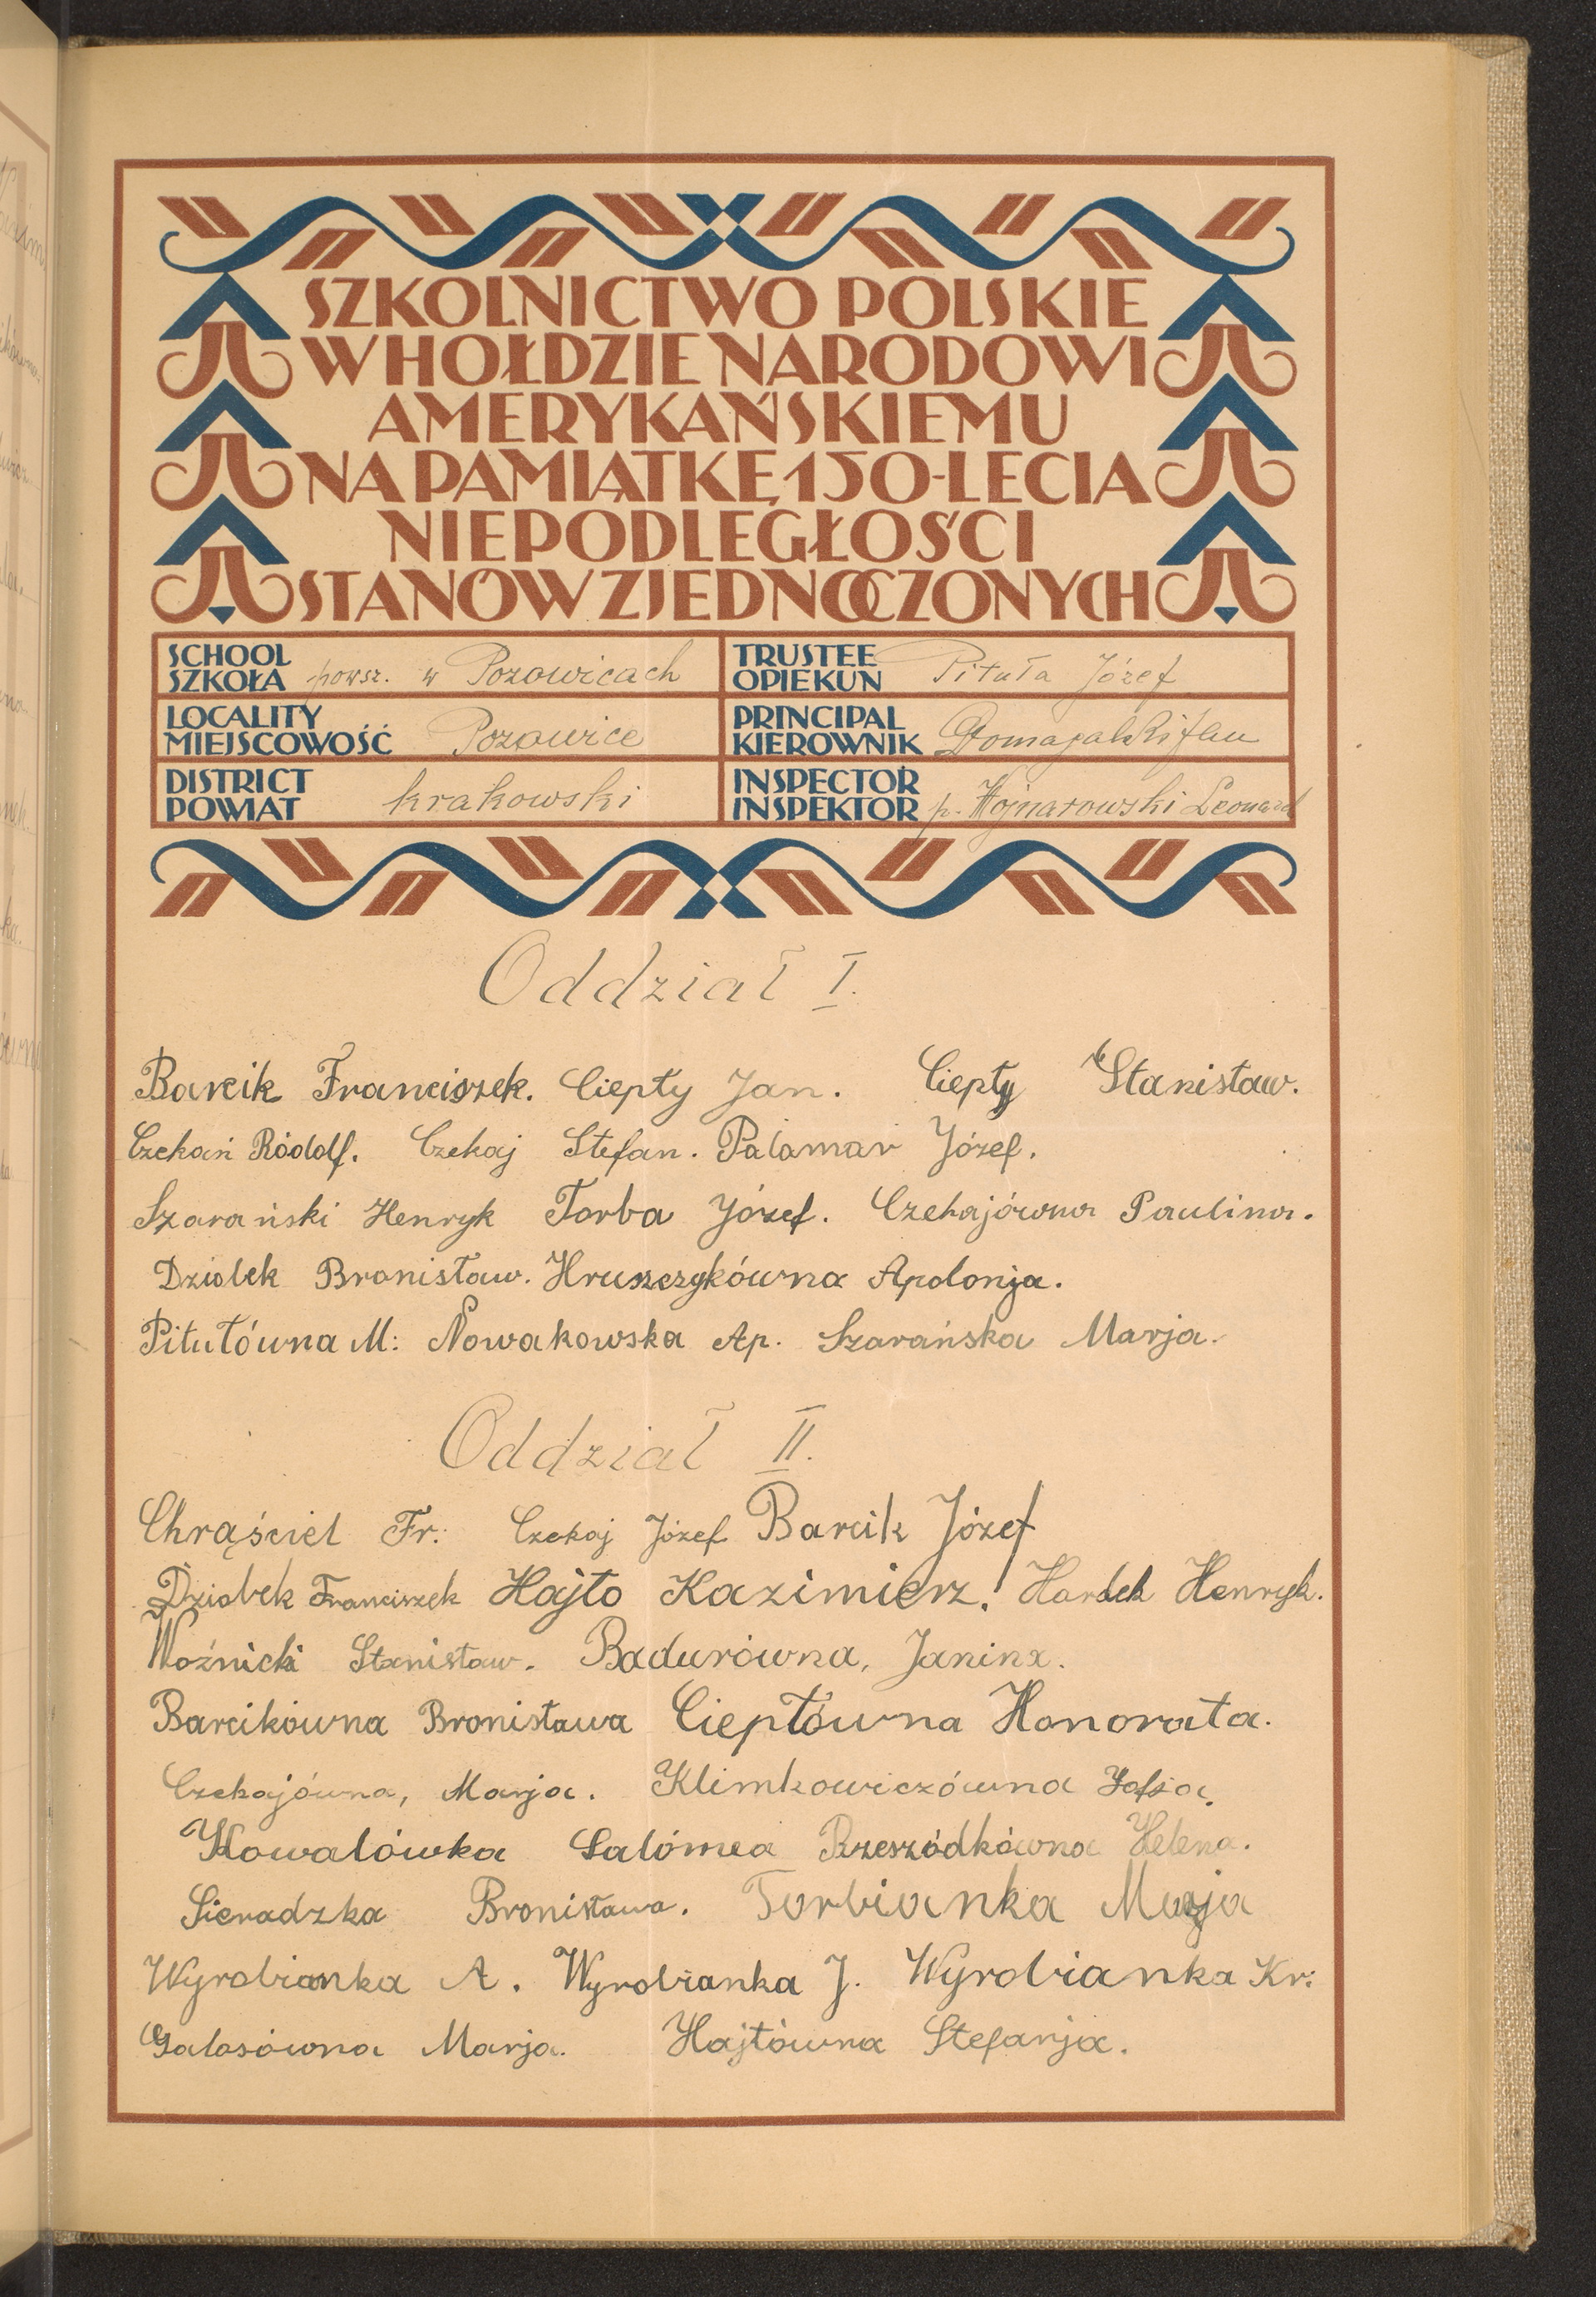 SZKOLNICTWO POLSKIE
W HOŁDZIE NARODOWI
AMERYKAŃSKIEMU
NA PAMIĄTKĘ 150-LECIA
NIEPODLEGŁOŚCI
STANÓW ZJEDNOCZONYCH
SCHOOL
SZKOŁA powsz. w Pozowicach
TRUSTEE
OPIEKUN Pituła Józef
LOCALITY
MIEJSCOWOŚĆ Pozowice
PRINCIPAL
KIEROWNIK Domagalski Jan
DISTRICT
POWIAT krakowski
INSPECTOR
INSPEKTOR p. Wojnarowski Leonard
Oddział I.
Barcik Franciszek. Ciepły Jan. Ciepły Stanisław.
Czekań Ródolf. Czekaj Stefan. Palamar Józef.
Szarański Henryk Torba Józef. Czekajówna Paulina.
Dziobek Bronisław. Hruszczykówna Apolonja.
Pitułówna M: Nowakowska Ap. Szarańska Marja.
Oddział II.
Chrąściel Fr: Czekaj Józef Barcik Józef
Dziobek Franciszek Hajto Kazimierz. Harbek Henryk.
Woźnicki Stanisław. Badurówna, Janina.
Barcikówna Bronisława Ciepłówna Honorata.
Czekajówna, Marja. Klimkowiczówna Zofja.
Kowalówka Salómea Rzeszódkówna Helena.
Sieradzka Bronisława. Torbianka Marja
Wyrobianka A. Wyrobianka J. Wyrobianka Kr:
Galosówna Marja. Hajtówna Stefanja.